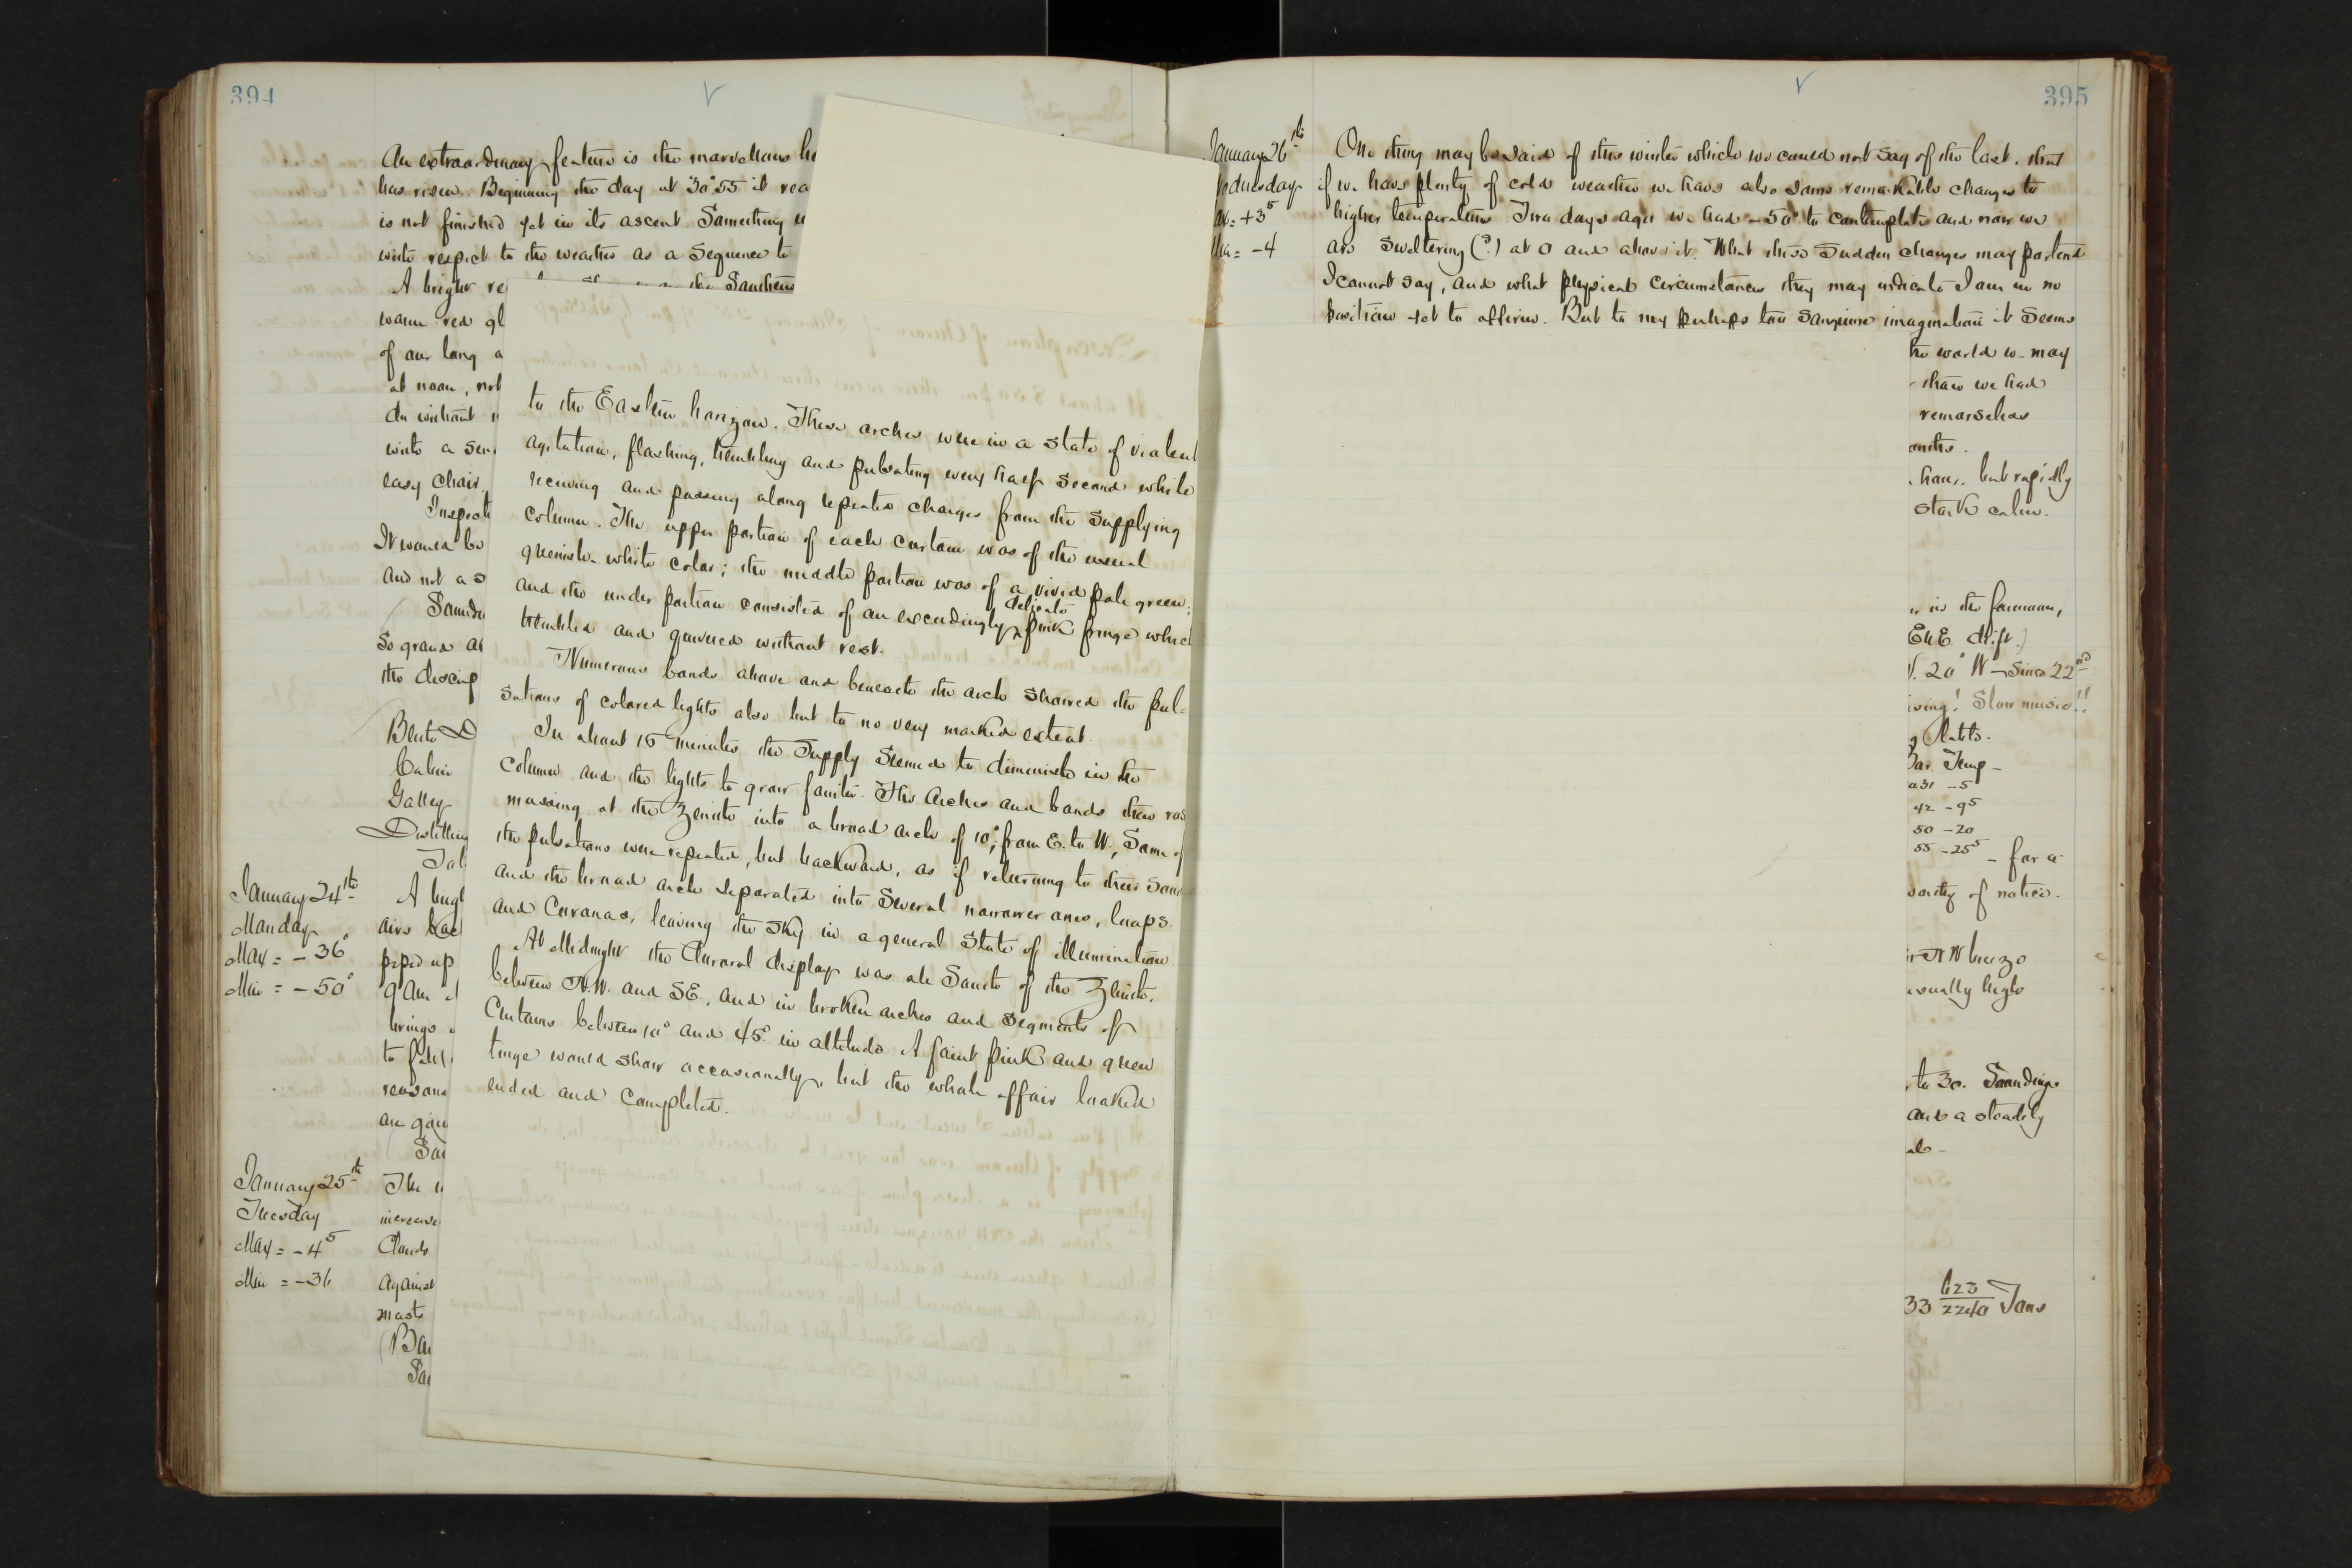 394
An extraordinary feature is the marvellous
has risen. Beginning the day at 30°55 it
is not finished yet in its ascent. Something
with respect to the weather as a sequence to
A bright
the Southern
warm red
of our long
at noon, not
do without
with a
easy chair
It would be
and not a
so grand
the
Cabin
Galley
Distilling
January 24th
Monday
Max = -36°
Min = -50°
airs
piped up
brings
January 25th
Tuesday
Max = -4⁵
Min = -36
The
Clouds
against
masts
to the Eastern horizon. These arches were in a state of violent
agitation, flashing, trembling and pulsating every half second while
receiving and passing along repeated charges from the supplying
column. The upper portion of each curtain was of the usual
greenish-white color; the middle portion was of a vivid pale green;
and the under portion consisted of an exceedingly delicate pink fringe which
trembled and quivered without rest.
Numerous bands above and beneath the arch shared the pul-
sations of colored lights also but to no very marked extent.
In about 15 minutes the supply seemed to diminish in the
column and the lights to grow fainter. The arches and bands then
massing at the Zenith into a broad arch of 10°, from E. to W., Some of
the pulsations were repeated, but backward, as if returning to their
and the broad arch separated into several narrower ones, loops
and Coronas, leaving the sky in a general state of illumination.
At Midnight the Auroral display was all South of the Zenith,
between N.W. and SE, and in broken arches and segments of
Curtains between 10° and 45° in altitude. A faint pink and green
tinge would show occasionally, but the whole affair looked
ended and completed.
395
January 26th
Wednesday
Max = +3⁵
Min = -4
One thing may be said of this winter which we could not say of the last, that
if we have plenty of cold weather we have also some remarkable changes to
higher temperatures. Two days ago we had -50° to contemplate and now we
are sweltering (?) at 0 and above it. What these sudden changes may portend
I cannot say, and what physical circumstances they may indicate I am in no
position yet to affirm. But to my perhaps too sanguine imagination it seems
the world we may
than we had
remorseless
but rapidly
stark calm.
in the forenoon,
ENE drift.)
20° W - Since 22nd
Slow music!!
Bar. Temp -
31 -5
42 -9⁵
50 -20
55 -25⁵ - for a
worthy of notice.
NW breeze
usually high
to 30. Soundings
and a steadily
33 623/2240 Tons